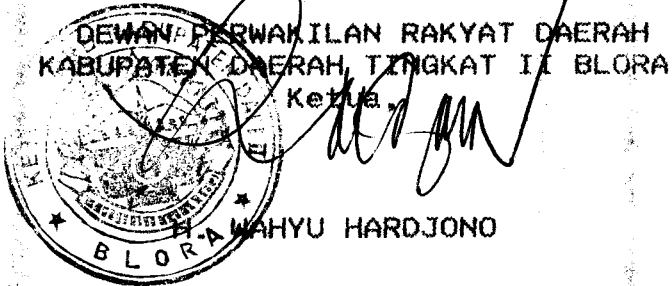 DEWAN PERWAKILAN RAKYAT DAERAH
KABUPATEN DAERAH TINGKAT II BLORA
Ketua,
H. WAHYU HARDJONO
BLORA